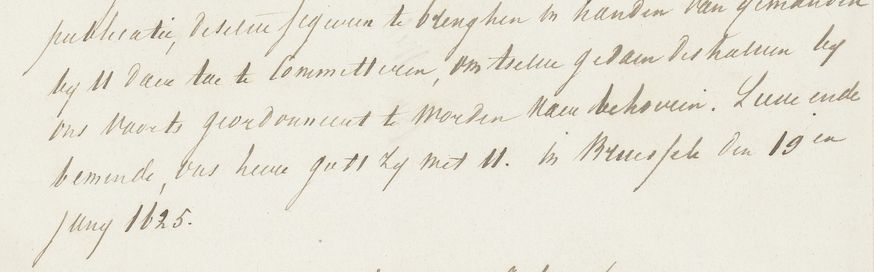 publicatie, deselve segwen te brenghen in handen van yemanden
by U daer toe te Committeren, om tselve gedaen deshalven by
ons voorts geordonneert te worden naer behooren. Lieve ende
beminde, ons heere godt zy met U. in Bruessele den 19 en
Juny 1625.